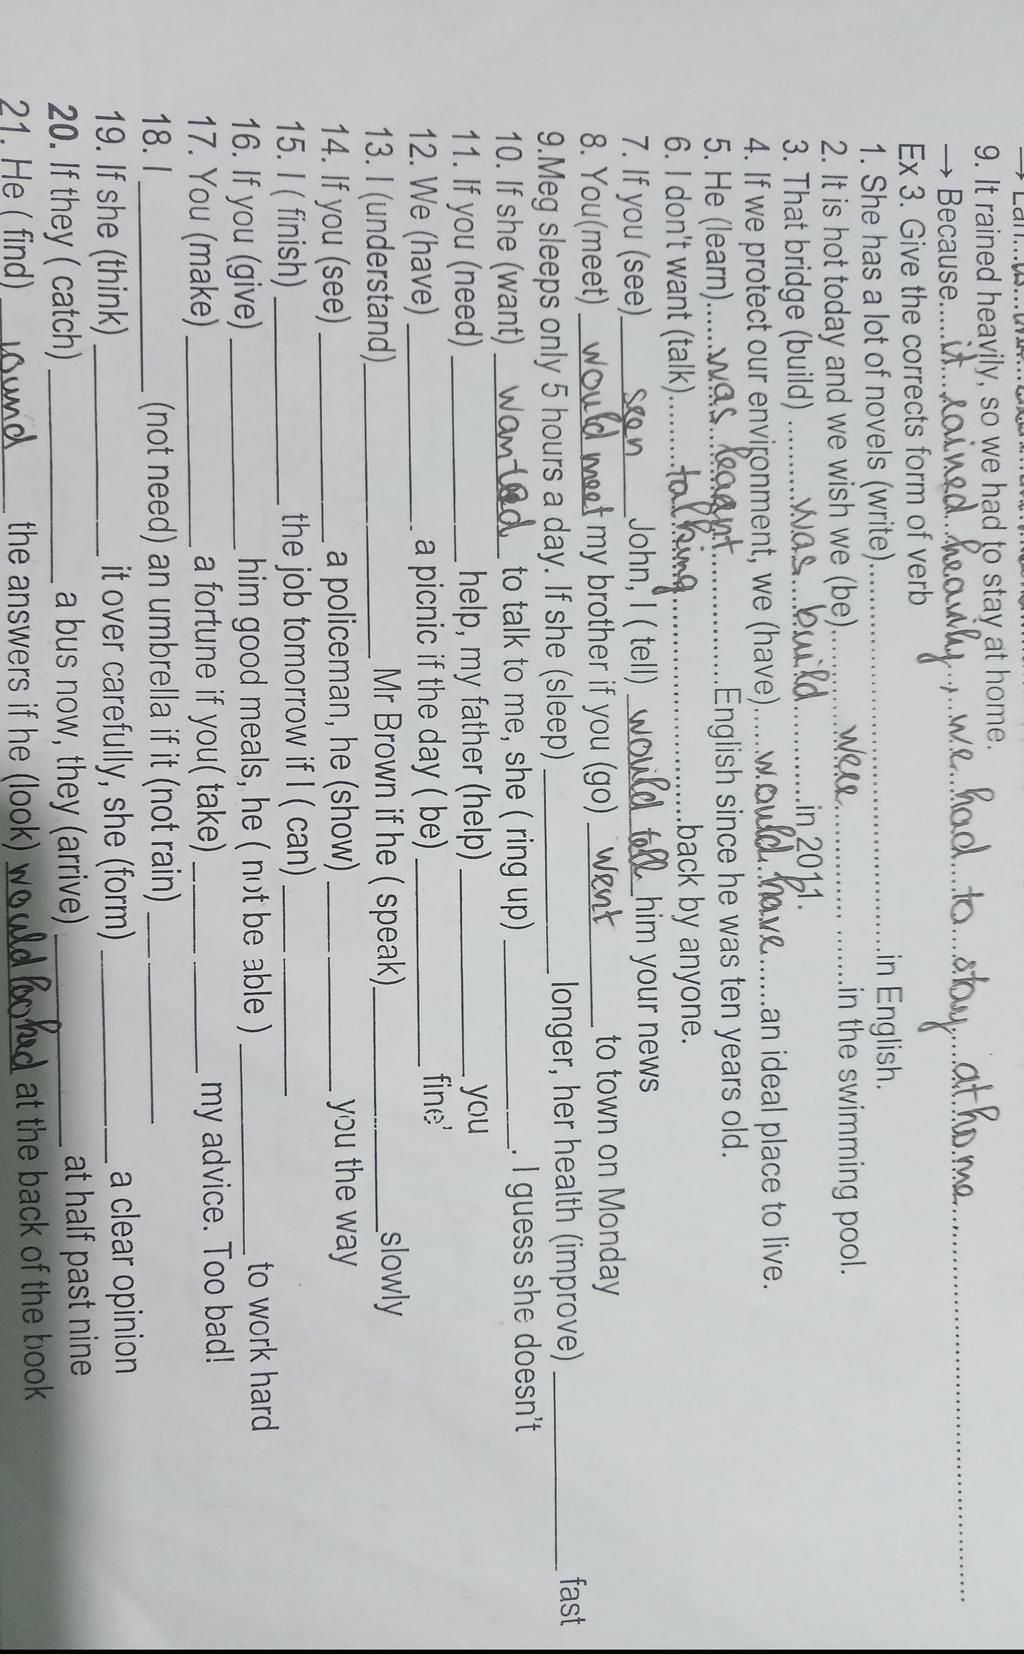 9. It rained heavily, so we had to stay at home.
→ Because.....it...rained..heavily.,..we...had...to...stay...at.home..........
Ex 3. Give the corrects form of verb
1. She has a lot of novels (write)..........in English.
2. It is hot today and we wish we (be)..........were.......... ........in the swimming pool.
3. That bridge (build) .........was...build............in 2011.
4. If we protect our environment, we (have).....would..have......an ideal place to live.
5. He (learn)......was..leant...............English since he was ten years old.
6. I don't want (talk).......talking..........................back by anyone.
7. If you (see)____seen____John, I ( tell) __would tell__him your news
8. You(meet) __would meet my brother if you (go) ____went____ to town on Monday
9.Meg sleeps only 5 hours a day. If she (sleep) __________ longer, her health (improve) __________ fast
10. If she (want) ____wanted__ to talk to me, she ( ring up) __________. I guess she doesn't
11. If you (need) __________ help, my father (help) __________ you
12. We (have) __________ a picnic if the day ( be) __________ fine'
13. I (understand)__________ Mr Brown if he ( speak)__________slowly
14. If you (see) __________ a policeman, he (show) __________ you the way
15. I ( finish) __________ the job tomorrow if I ( can) __________
16. If you (give) __________ him good meals, he ( not be able ) __________ to work hard
17. You (make) __________ a fortune if you( take) __________ my advice. Too bad!
18. I __________ (not need) an umbrella if it (not rain) __________
19. If she (think) __________ it over carefully, she (form) __________ a clear opinion
20. If they ( catch) __________ a bus now, they (arrive)__________ at half past nine
21. He ( find) ____found____ the answers if he (look) would looked at the back of the book